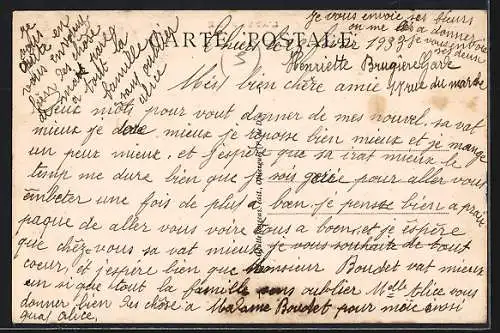 je vous envoie ses fleurs
on me les a donner
je vous envoie
CARTE POSTALE
1933
Henriette Brugière Gare
Mes bien chère amie 17 rue du marbre
Deux mots pour vout donner de mes nouvel. sa vat
mieux je dore mieux je repose bien mieux et je mange
un peux mieux. et j'espère que sa irat mieux le
temp me dure bien que je soi gérée pour aller vous
embeter une fois de plus a boen. je pense bien a
paque de aller vous voire a boen. et je espère
que chez vous sa vat mieux je vous souhaite de tout
coeur, et j'espère bien que monsieur Boudet vat mieux
en si que tout la famille sans oublier Mlle Alice vous
donner bien des chose a Madame Boudet pour moi
quas alice,
je
vous
en
vous envoyer
bien des chose
de ma par
a tout la
famille
sans oublier
alice